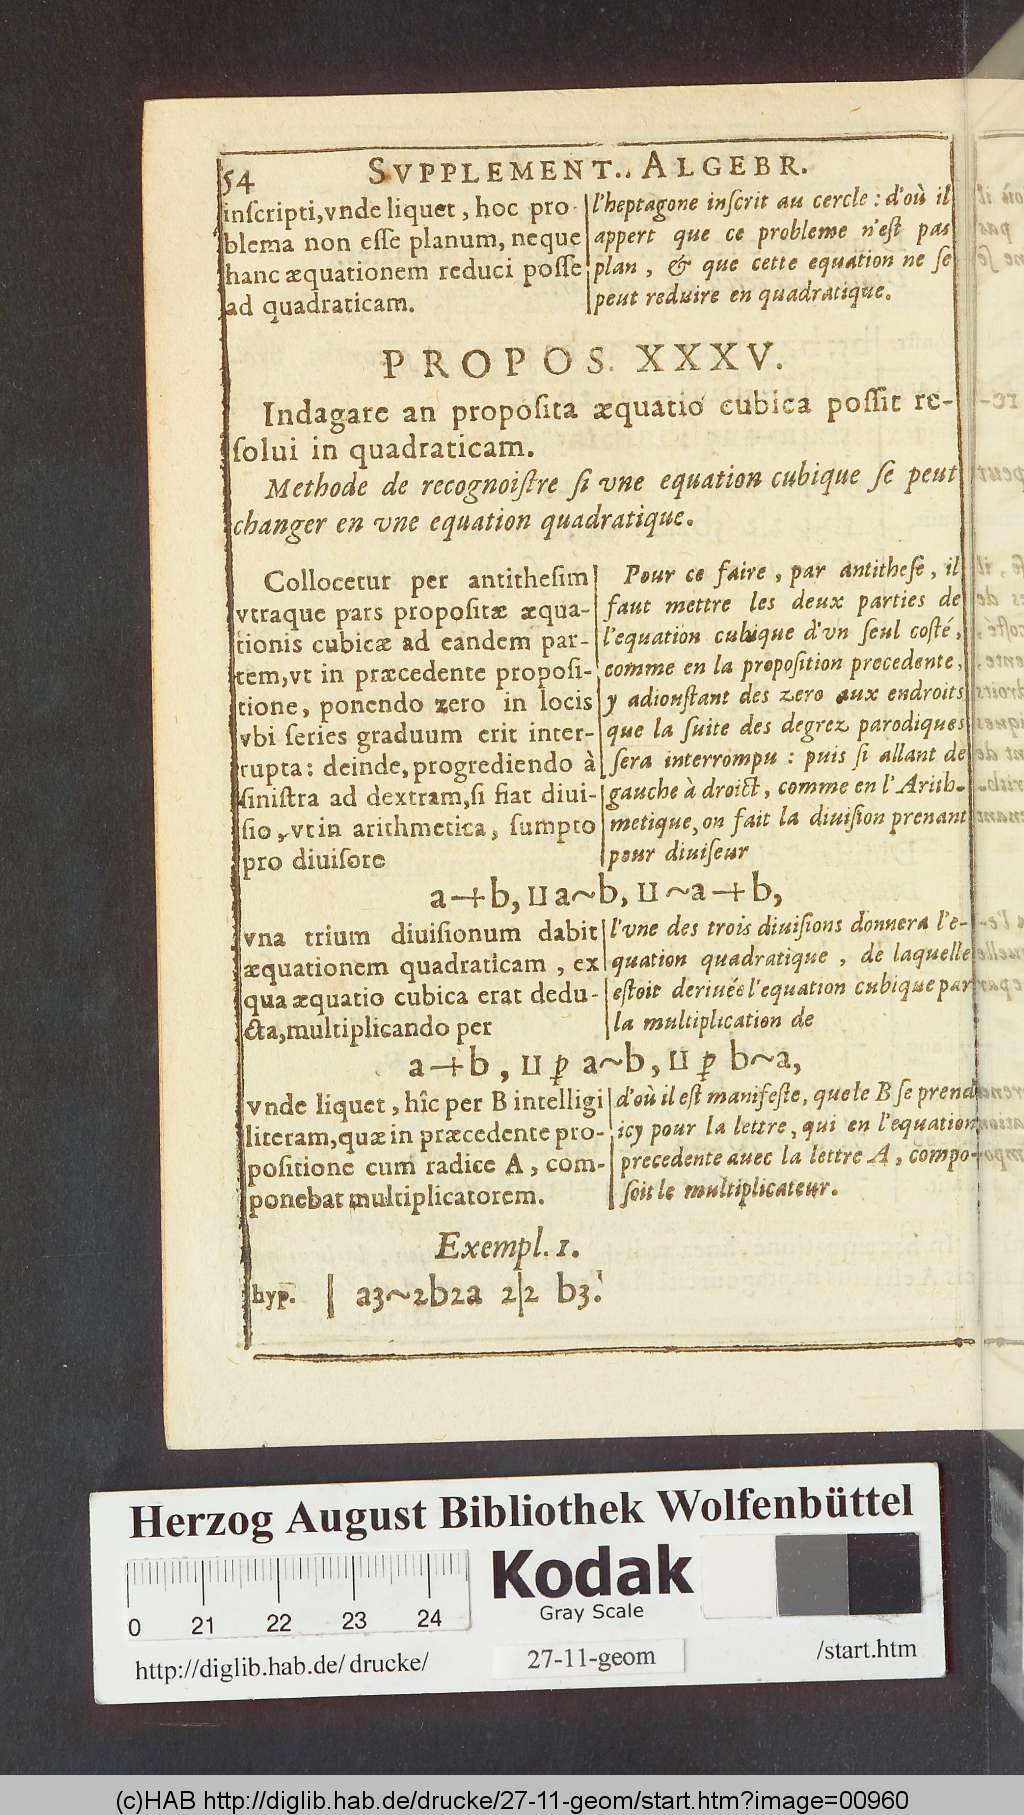 54 SVPPLEMENT.. ALGEBR.
inſcripti,vnde liquet, hoc pro-
blema non eſſe planum, neque
hanc æquationem reduci poſſe
ad quadraticam.
l'heptagone inſcrit au cercle : d'où il
appert que ce probleme n'eſt pas
plan, & que cette equation ne ſe
peut reduire en quadratique.
PROPOS. XXXV.
Indagare an propoſita æquatio cubica poſſit re-
ſolui in quadraticam.
Methode de recognoiſtre ſi vne equation cubique ſe peut
changer en vne equation quadratique.
Collocetur per antitheſim
vtraque pars propoſitæ æqua-
tionis cubicæ ad eandem par-
tem,vt in præcedente propoſi-
tione, ponendo zero in locis
vbi ſeries graduum erit inter-
rupta: deinde, progrediendo à
ſiniſtra ad dextram,ſi fiat diui-
ſio, vt in arithmetica, ſumpto
pro diuiſore
Pour ce faire, par antitheſe, il
faut mettre les deux parties de
l'equation cubique d'vn ſeul coſté,
comme en la propoſition precedente,
y adiouſtant des zero aux endroits
que la ſuite des degrez parodiques
ſera interrompu : puis ſi allant de
gauche à droict, comme en l'Arith-
metique, on fait la diuiſion prenant
pour diuiſeur
a-+b, II a~b, II ~a-+b,
vna trium diuiſionum dabit
æquationem quadraticam, ex
qua æquatio cubica erat dedu-
cta,multiplicando per
l'vne des trois diuiſions donnera l'e-
quation quadratique, de laquelle
eſtoit deriuée l'equation cubique par
la multiplication de
a-+b, II ꝑ a~b, II ꝑ b~a,
vnde liquet, hîc per B intelligi
literam,quæ in præcedente pro-
poſitione cum radice A, com-
ponebat multiplicatorem.
d'où il eſt manifeſte, que le B ſe prend
icy pour la lettre, qui en l'equation
precedente auec la lettre A, compo-
ſoit le multiplicateur.
Exempl. 1.
hyp. | a3~2b2a 2|2 b3.
Herzog August Bibliothek Wolfenbüttel
Kodak
Gray Scale
0 21 22 23 24
http://diglib.hab.de/ drucke/
27-11-geom
/start.htm
(c)HAB http://diglib.hab.de/drucke/27-11-geom/start.htm?image=00960